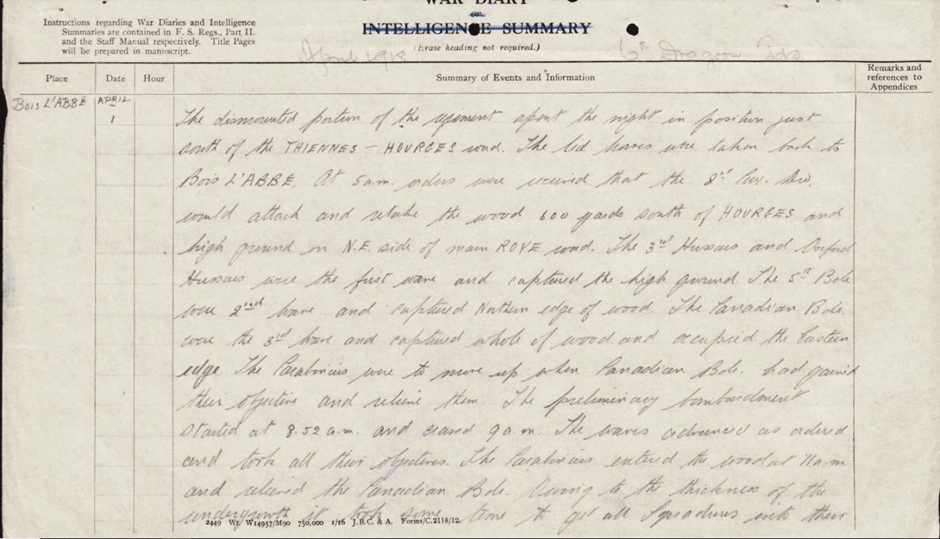 WAR DIARY
OR
INTELLIGENCE SUMMARY
(Erase heading not required.)
Instructions regarding War Diaries and Intelligence
Summaries are contained in F. S. Regs., Part II.
and the Staff Manual respectively. Title Pages
will be prepared in manuscript.
April 1918
6th Dragoon Gds
Place Date Hour Summary of Events and Information Remarks and
references to
Appendices
BOIS L'ABBÉ APRIL
1
The dismounted portion of the regiment spent the night in position just
south of the THIENNES - HOURGES road. The led horses were taken back to
BOIS L'ABBÉ. At 5 am. orders were received that the Cav. Div.
would attack and retake the wood 600 yards south of HOURGES and
high ground on N.E. side of main ROYE road. The 3rd Hussars and Oxford
Hussars were the first wave and captured the high ground. The 5th Bde
were 2nd wave and captured Northern edge of wood. The Canadian Bde.
were the 3rd wave and captured whole of wood and occupied the Eastern
edge. The Carabiniers were to move up when Canadian Bde. had gained
their objective and relieve them. The preliminary bombardment
started at 8.52 a.m. and ceased 9 a.m. The waves advanced as ordered
and took all their objectives. The Carabiniers entered the wood at 11 a.m
and relieved the Canadian Bde. Owing to the thickness of the
undergrowth it took some time to get all Squadrons into their
2449 Wt. W14957/M90 750,000 1/16 J.B.C. & A. Forms/C.2118/12.